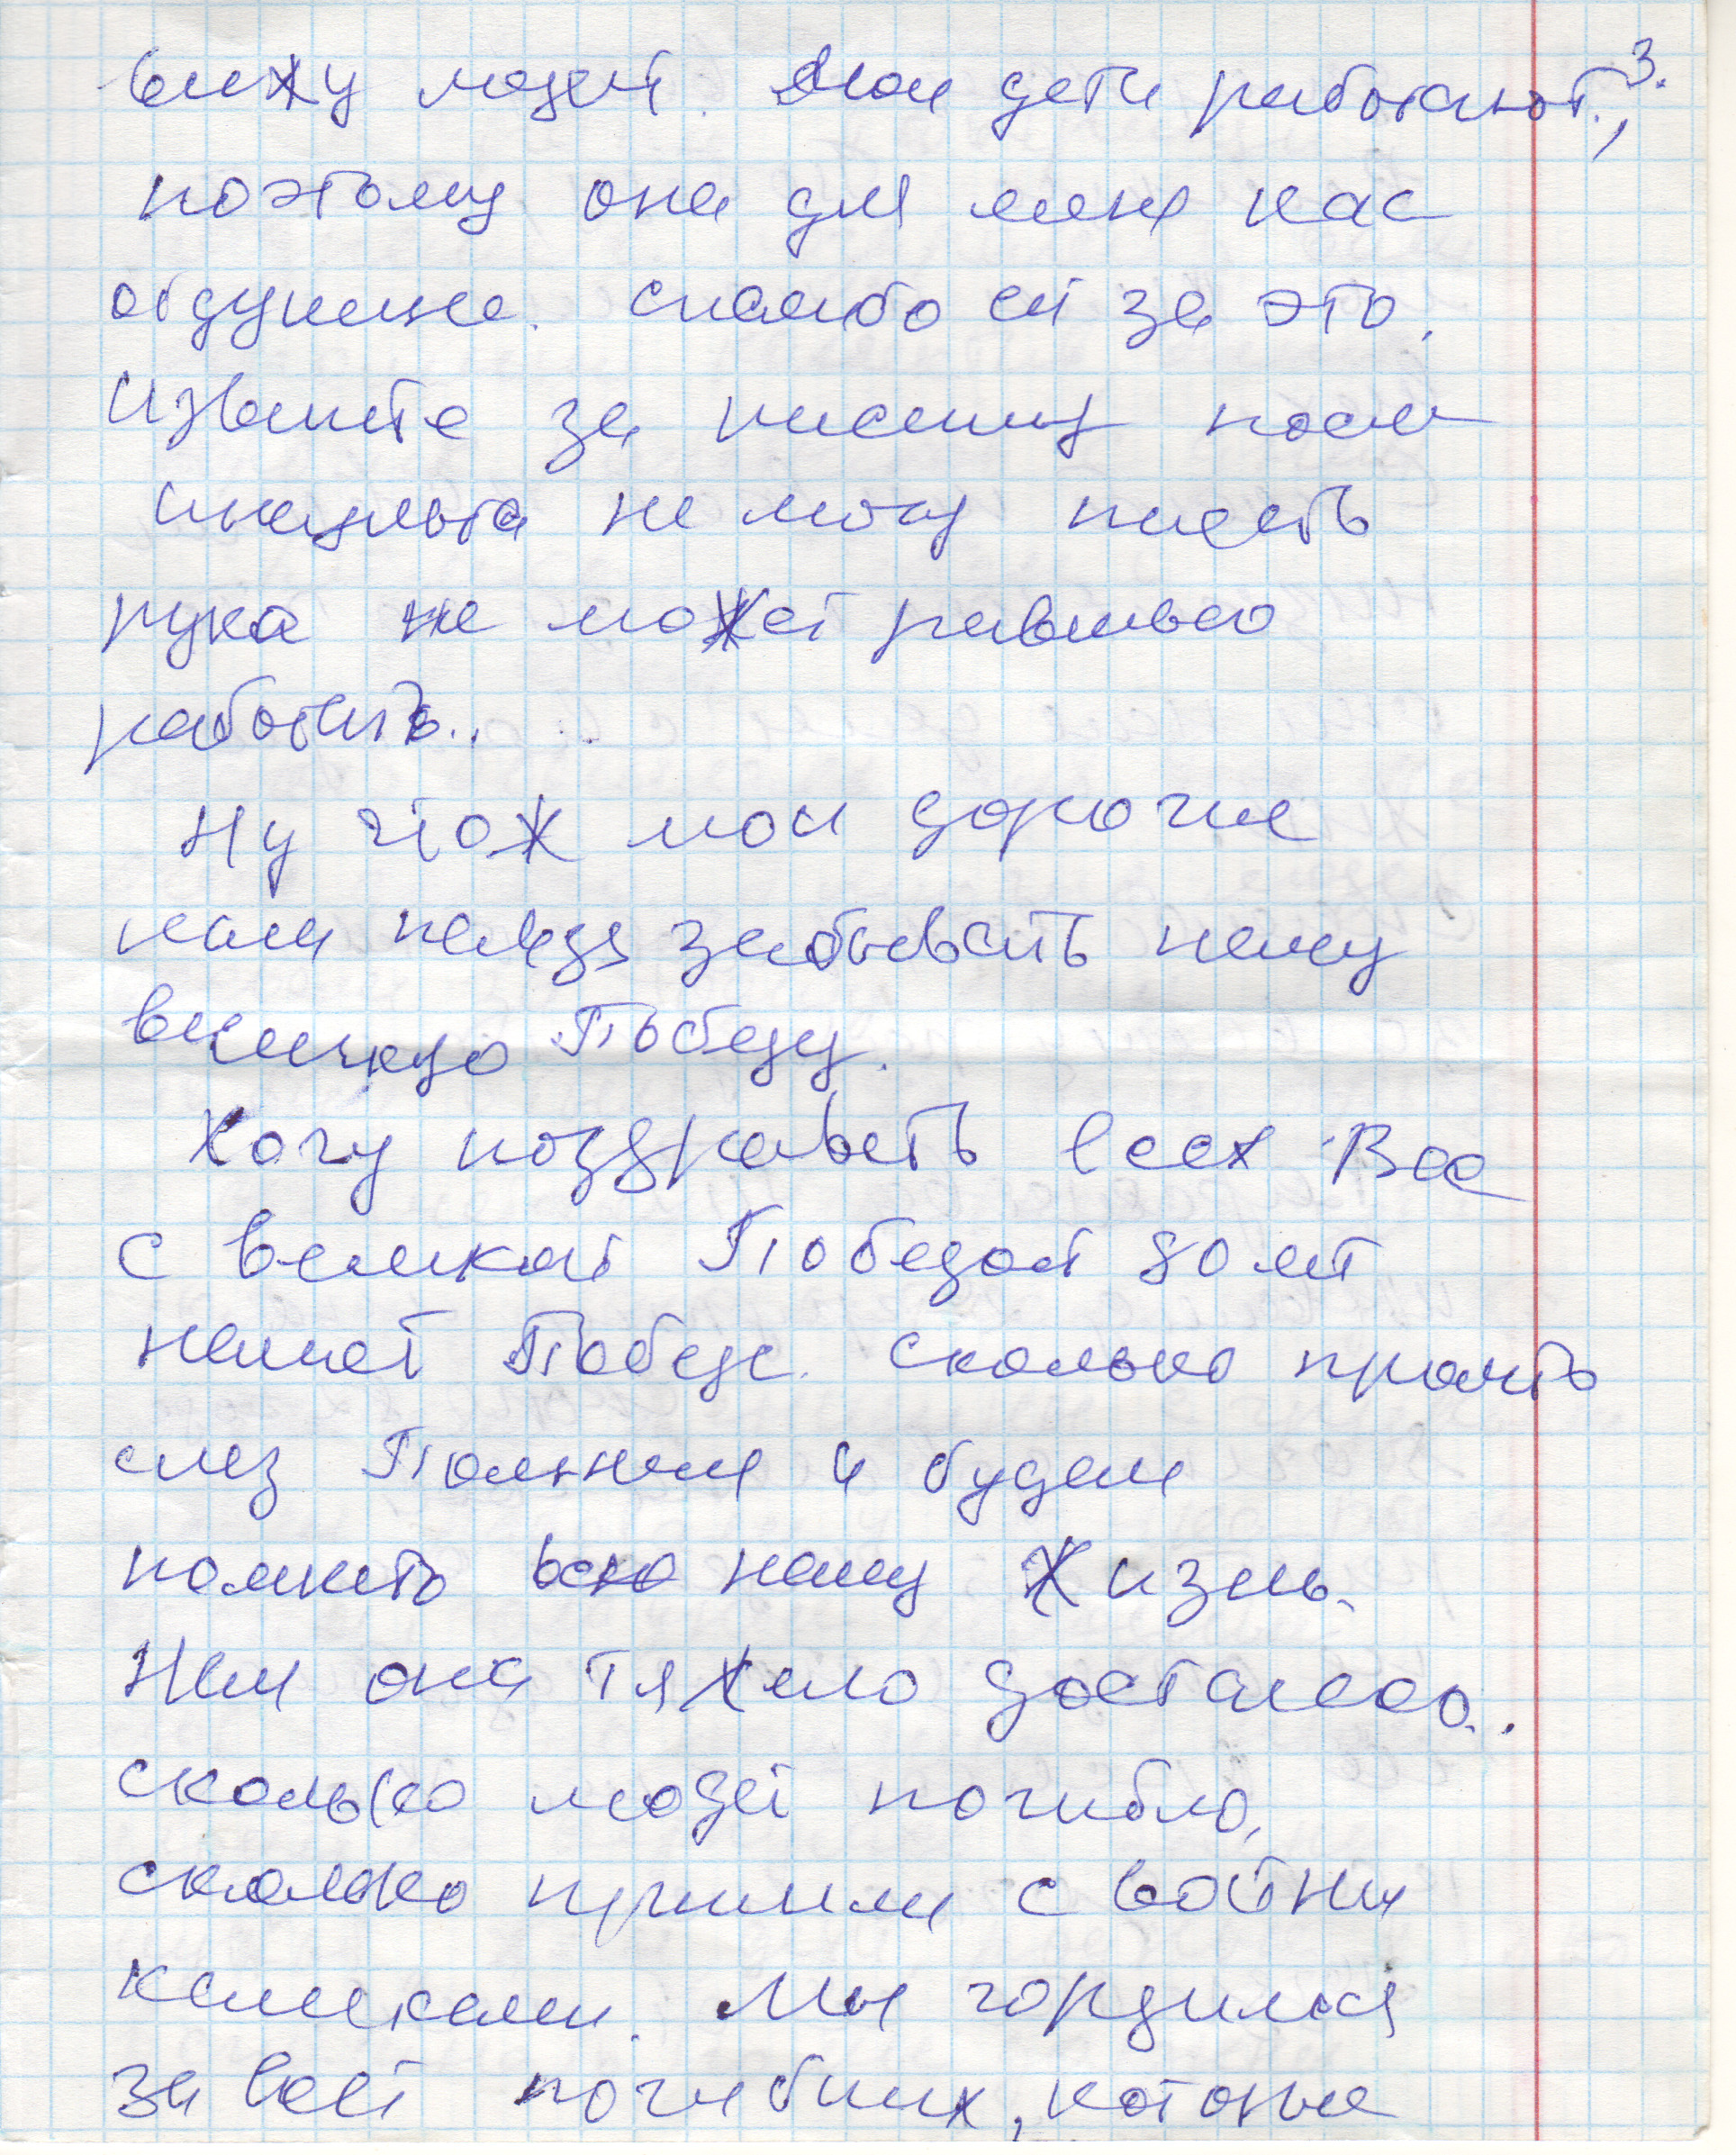 3.
вижу людей. Мои дети работают.,
поэтому она для меня как
отдушина. спасибо ей за это.
Извините за писанину после
инсульта не могу писать
рука не может равильно
работать..
Ну чтож мои дорогие
нам нельзя забывать нашу
великую Победу.
Хочу поздравить всех Вас
с великой Победой 80 лет
нашей Победе. сколько
слез Помним и будем
помнить всю нашу жизнь.
Нам она тяжело досталась..
сколько людей погибло,
сколько пришли с войны
калеками. Мы гордимся
за всей погибших, которые